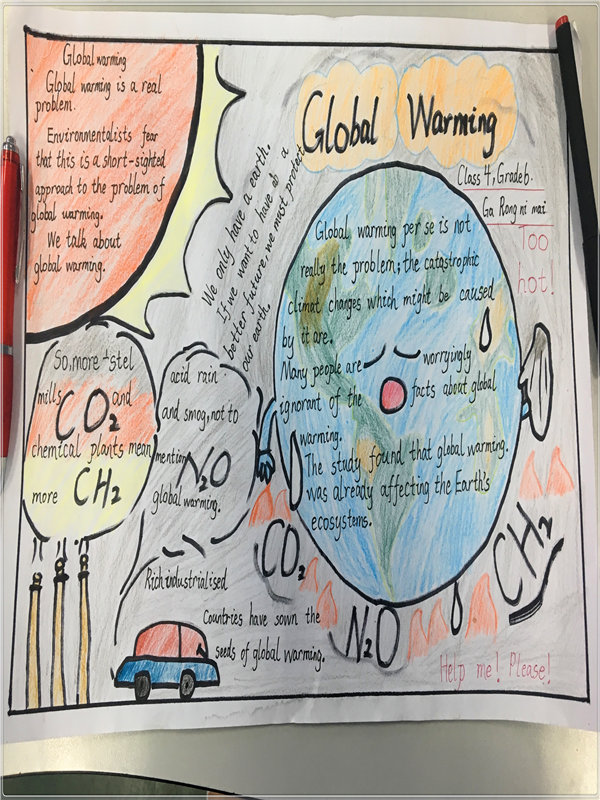 Global warming
Global warming is a real
problem.
Environmentalists fear
that this is a short-sighted
approach to the problem of
global warming.
We talk about
global warming.
We only have a earth.
If we want to have ab a
better future, we must protect
our earth.
Global Warming
Class 4, Grade6.
Ga Rong ni mai
Too
hot!
Global warming per se is not
really the problem; the catastrophic
climat changes which might be caused
by it are.
Many people are worryingly
ignorant of the facts about global
warming.
The study found that global warming.
was already affecting the Earth's
ecosystems.
So, more stel
mills CO2 and
chemical plants mean
more CH2
acid rain
and smog, not to
mention N2O
global warming.
Rich industrialised
Countries have sown the
seeds of global warming.
CO2
N2O
CH2
Help me! Please!